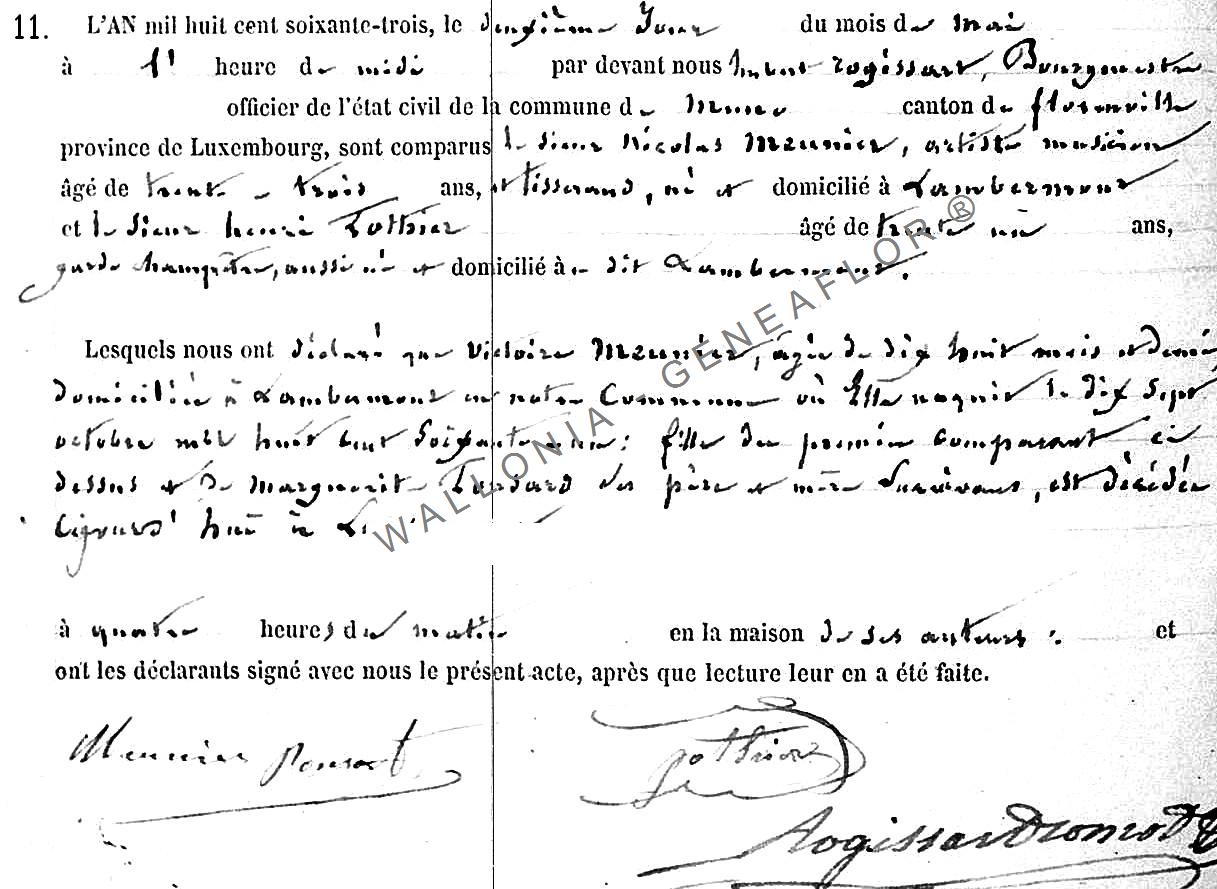 11. L'AN mil huit cent soixante-trois, le deuxième Jour du mois de mai
à 1' heure de midi par devant nous rogissart, Bourgmestre
officier de l'état civil de la commune de muno canton de florenville
province de Luxembourg, sont comparus le sieur Nicolas Meunier, artiste musicien
âgé de trente-trois ans, et tisserand, né et domicilié à Lambermont
et le sieur henri Pothier âgé de trente un ans,
garde champêtre, aussi né et domicilié à dit Lambermont.
Lesquels nous ont déclaré que Victoire Meunier, âgée de dix huit mois et demi,
domiciliée à Lambermont en notre Commune où Elle naquit le dix sept
octobre mil huit cent Soixante un: fille du premier Comparant ci
dessus et De Marguerite des père et mère Survivans, est décédée
à
à quatre heures du matin en la maison de ses auteurs. et
ont les déclarants signé avec nous le présent acte, après que lecture leur en a été faite.
Meunier Ponsart Pothier
Rogissart
WALLONIA GENEAFLOR ®